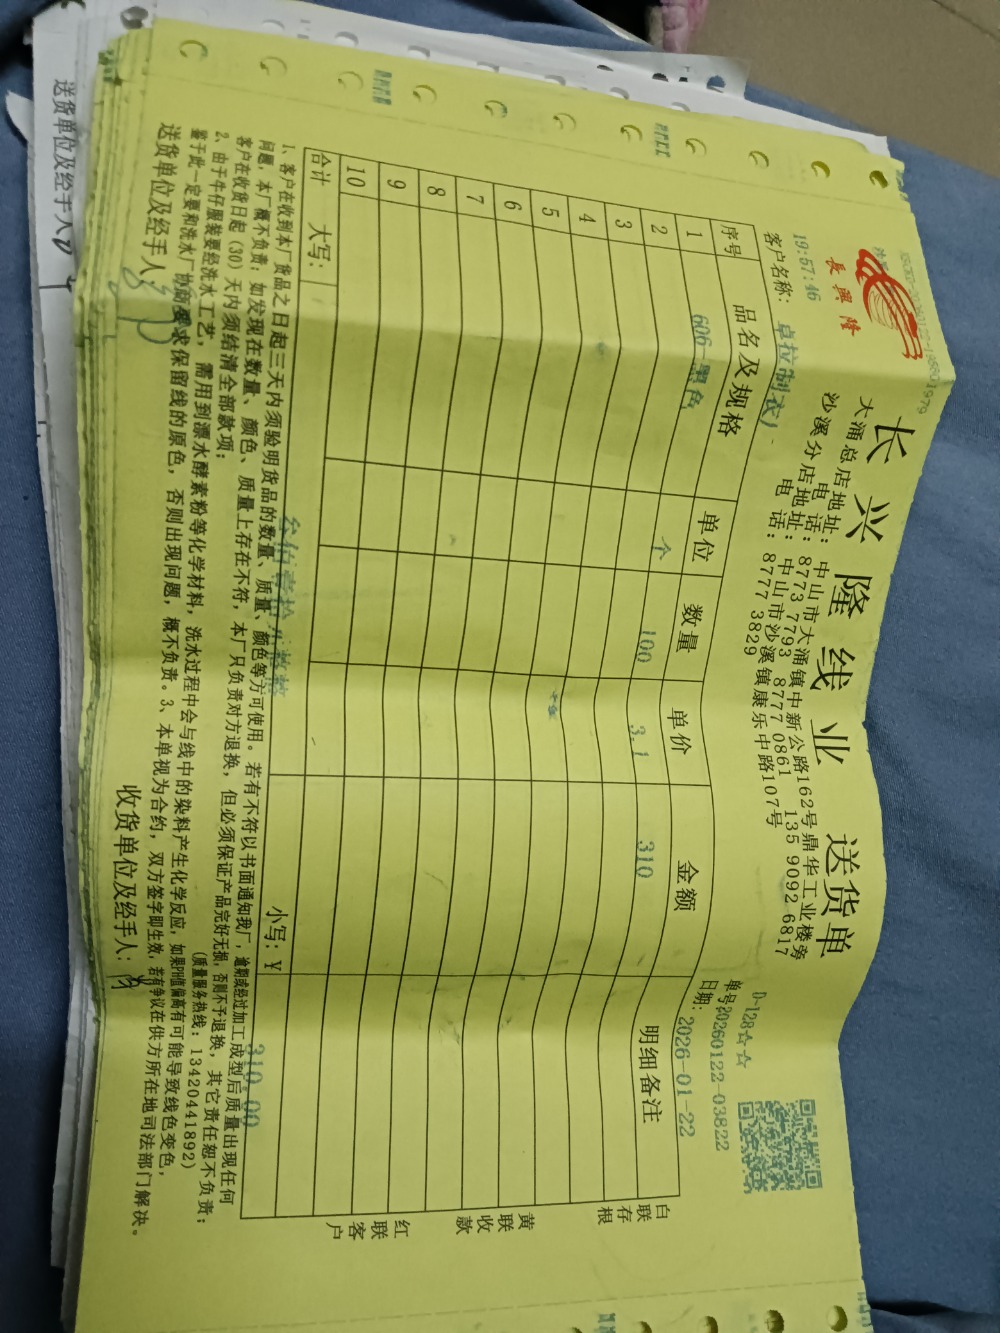 長興隆
19:57:46
长兴隆线业 送货单
大涌总店地址：中山市大涌镇中新公路162号鼎华工业楼旁
电话：8773 7793 8777 0861 135 9092 6817
沙溪分店地址：中山市沙溪镇康乐中路107号
电话：8777 3829
D-128☆☆
单号:20260122-03822
日期：2026-01-22
客户名称：卓拉制衣
序号 品名及规格 单位 数量 单价 金额 明细备注
1 606-黑色 个 100 3.1 310
2
3
4
5
6
7
8
9
10
合计 大写：叁佰壹拾元整 小写：￥310.00
白联存根
黄联收款
红联客户
1、客户在收到本厂货品之日起三天内须验明货品的数量、质量、颜色等方可使用。若有不符以书面通知我厂，逾期或经过加工成型后质量出现任何
问题，本厂概不负责；如发现在数量、颜色、质量上存在不符，本厂只负责对方退换，但必须保证产品完好无损，否则不予退换，其它责任恕不负责；
客户在收货日起（30）天内须结清全部款项； （质量服务热线：13420441892）
2、由于牛仔服装要经洗水工艺，需用到漂水酵素粉等化学材料，洗水过程中会与线中的染料产生化学反应，如果PH值偏高有可能导致线色变色，
鉴于此一定要和洗水厂协商要求保留线的原色，否则出现问题，概不负责。3、本单视为合约，双方签字即生效，若有争议在供方所在地司法部门解决。
送货单位及经手人： 收货单位及经手人：
送货单位及经手人